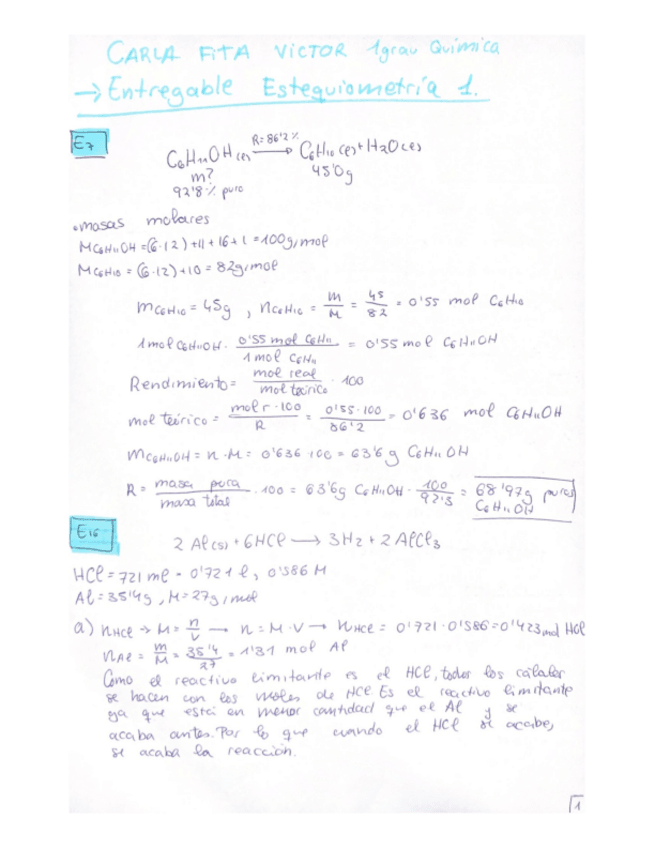 CARLA FITA VICTOR 1grau Química
→ Entregable Estequiometría 1.
E7
C6H11OH (l) R=86'2% → C6H10 (l) + H2O (l)
m? 45'0g
92'8% puro
• masas molares
MC6H11OH = (6·12) + 11 + 16 + 1 = 100g/mol
MC6H10 = (6·12) + 10 = 82g/mol
mC6H10 = 45g , nC6H10 = m/M = 45/82 = 0'55 mol C6H10
1 mol C6H11OH · 0'55 mol C6H11 / 1 mol C6H11 = 0'55 mol C6H11OH
Rendimiento = mol real / mol teórico · 100
mol teórico = mol r · 100 / R = 0'55 · 100 / 86'2 = 0'636 mol C6H11OH
mC6H11OH = n · M = 0'636 · 100 = 63'6 g C6H11OH
R = masa pura / masa total · 100 = 63'6g C6H11OH · 100 / 92'3 = 68'97g puros
C6H11OH
E16
2 Al (s) + 6HCl → 3H2 + 2 AlCl3
HCl = 721 ml = 0'721 l, 0'586 M
Al = 35'4g , M = 27g/mol
a) nHCl → M = n/V → n = M · V → nHCl = 0'721 · 0'586 = 0'423 mol HCl
nAl = m/M = 35'4/27 = 1'31 mol Al
Como el reactivo limitante es el HCl, todos los cálculos
se hacen con los moles de HCl. Es el reactivo limitante
ya que está en menor cantidad que el Al y se
acaba antes. Por lo que cuando el HCl se acabe,
se acaba la reacción.
1